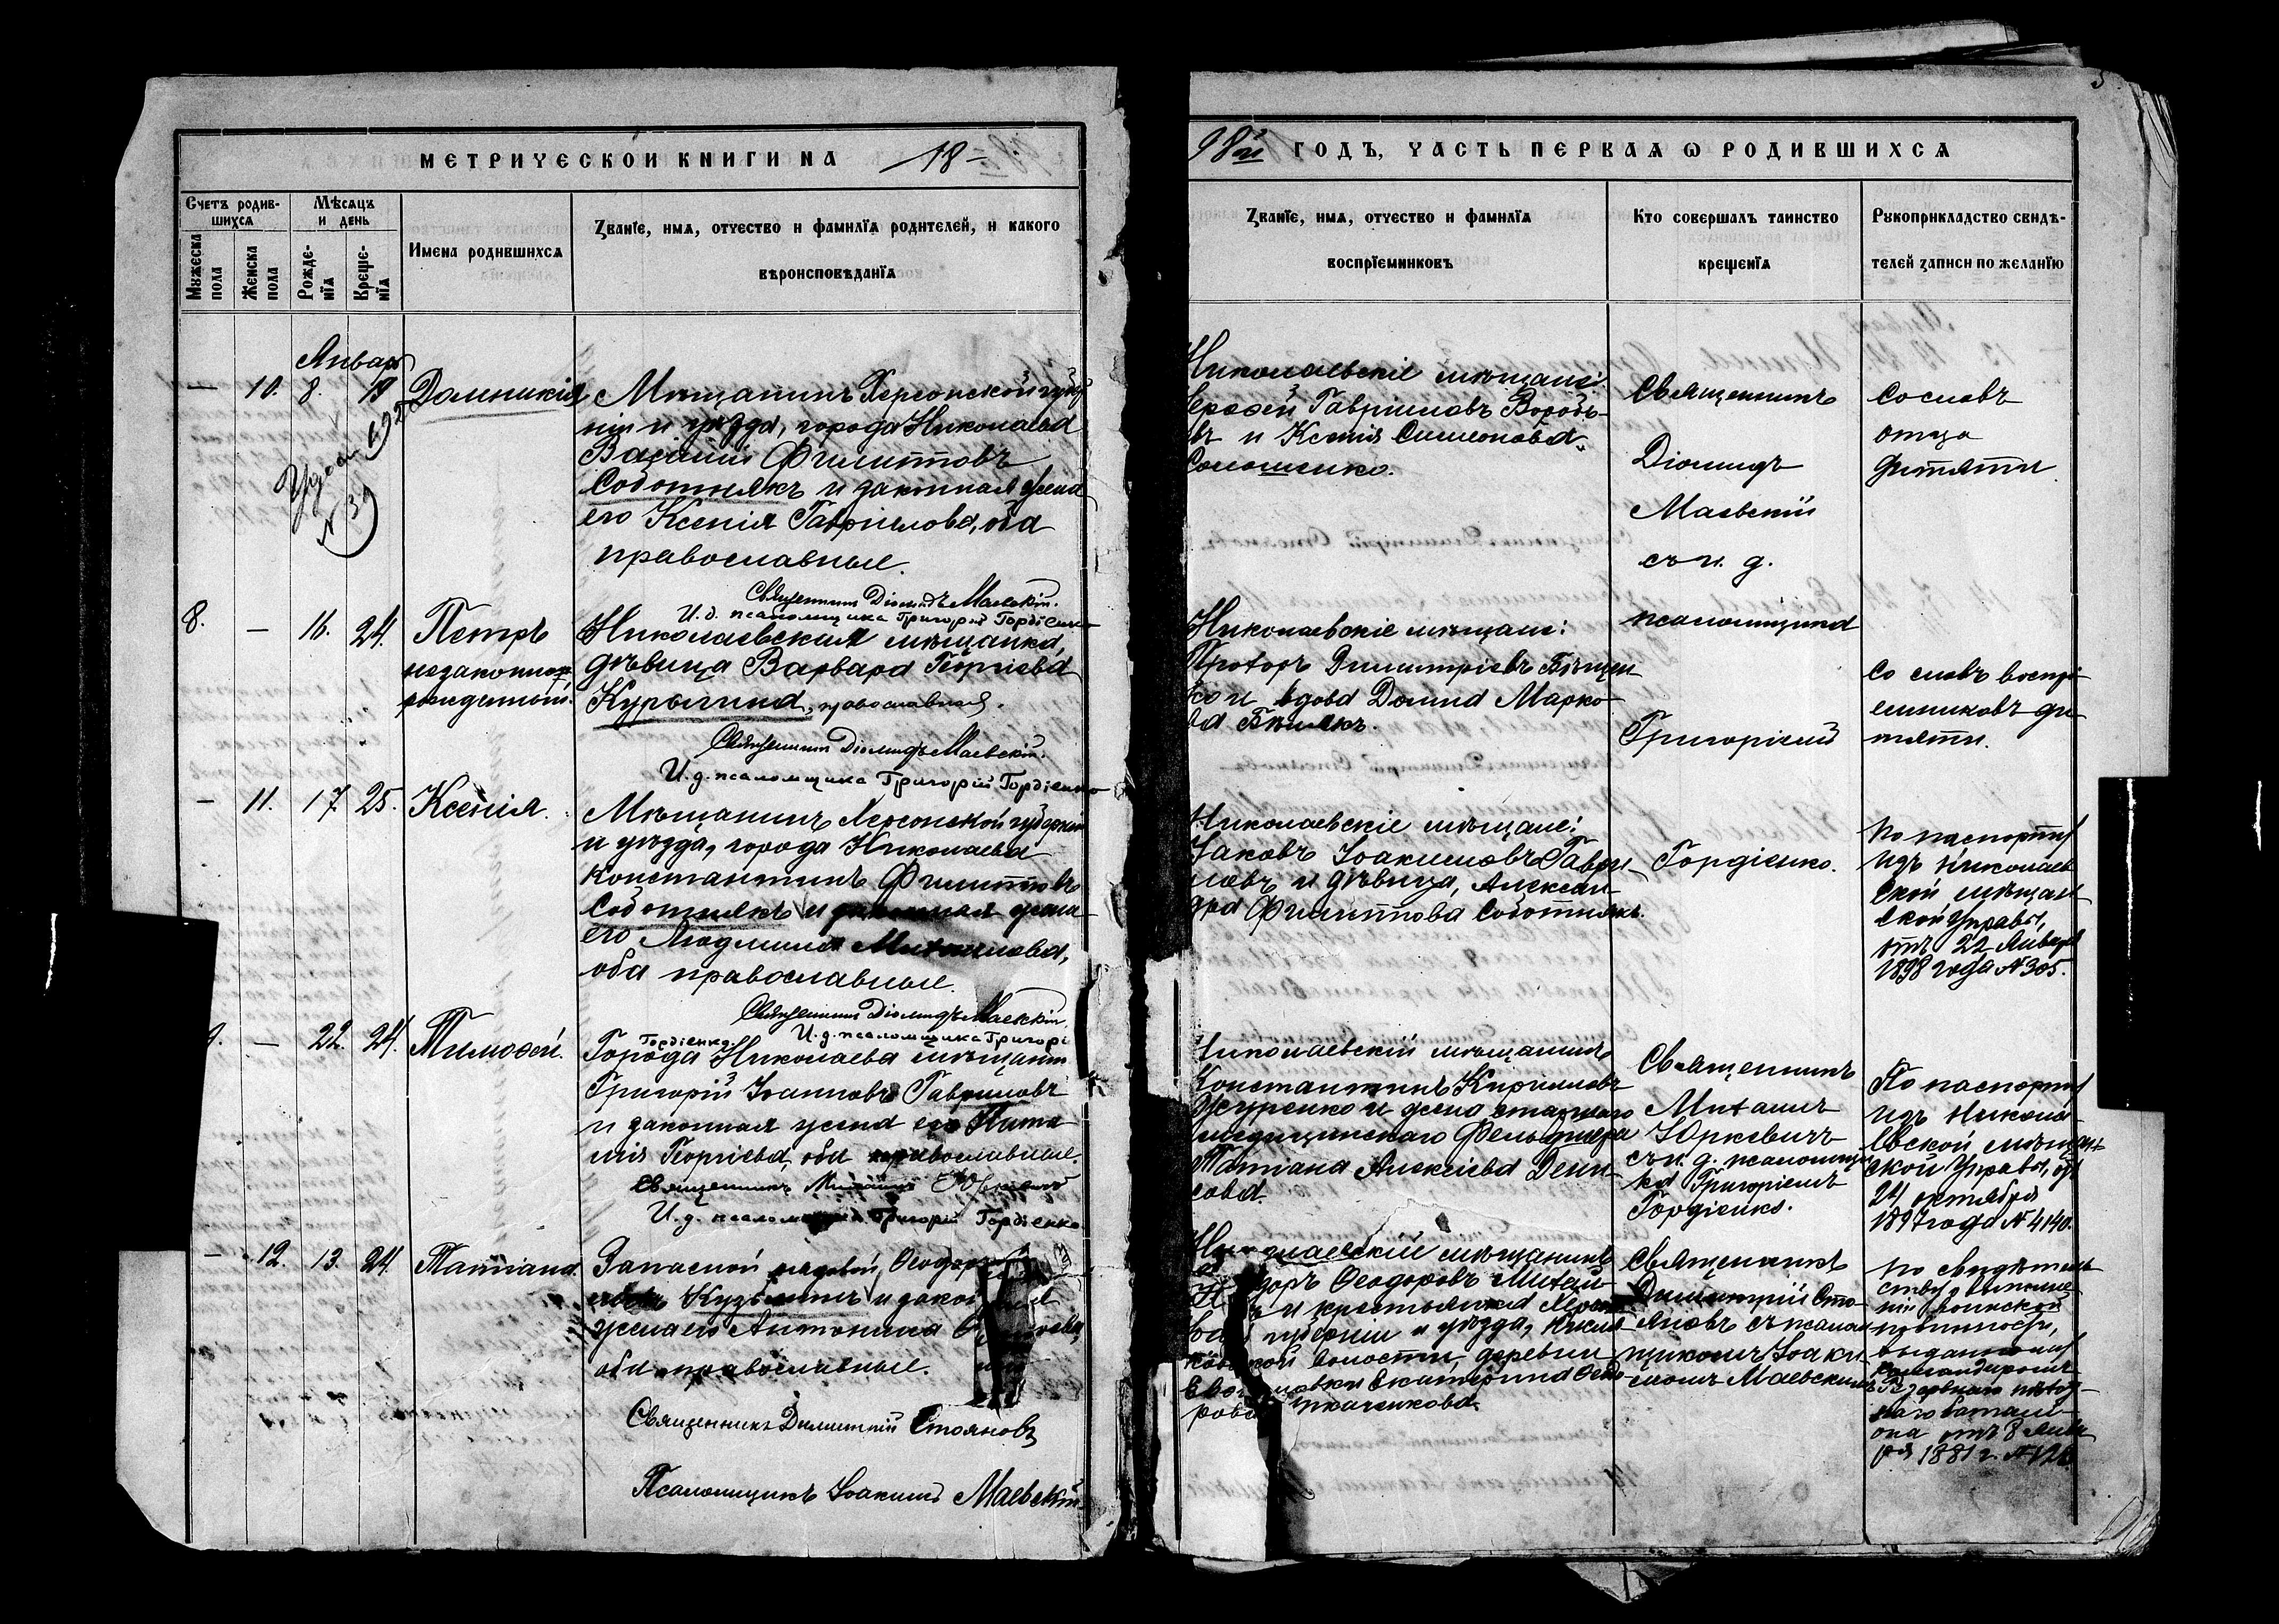 МЕТРИЧЕСКОЙ КНИГИ НА 18
98й ГОДЪ, ЧАСТЬ ПЕРВАЯ Ѡ РОДИВШИХСЯ
Счетъ родив-
шихся
Мужеска
пола
Женска
пола
Мѣсяцъ
и день
Рожде-
нїя
Креще-
нїя
Имена родившихся
Званїе, имя, отчество и фамилїя родителей, и какого
вѣроисповѣданїя
Званїе, имя, отчество и фамилїя
воспрїемниковъ
Кто совершалъ таинство
крещенїя
Рукоприкладство свидѣ-
телей записи по желанїю
Январь
— 10. 8. 19 Домникія
№ 39
Мѣщанинъ Херсонской губер
ніи и уѣзда, города Николаева
Василій Филипповъ
Соботнякъ и законная жена
его Ксенія Гавріилова, оба
православные.
Священникъ Діомидъ Маевскій.
И. д. псаломщика Григорій Гордіенко
Николаевскіе мѣщане:
Гавріиловъ Воробь-
въ и Ксенія Симеонова
Священникъ
Діомидъ
Маевскій
съ и. д.
псаломщика
Григоріемъ
Гордіенко.
Со словъ
отца
дитяти
8. — 16. 24. Петръ
незаконно
рожденный.
Николаевская мѣщанка,
дѣвица Варвара Георгіева
Курыгина, православная.
Священникъ Діомидъ Маевскій.
И. д. псаломщика Григорій Гордіенко
Николаевскіе мѣщане:
Димитріевъ
и вдова Домна Марко-
ва Бѣлякъ.
Со словъ воспрі-
емниковъ ди-
тяти.
— 11. 17. 25. Ксенія.
Мѣщанинъ Херсонской губерніи
и уѣзда, города Николаева
Константинъ Филипповъ
Соботнякъ и законная жена
его Людмила Михаилова,
оба православные.
Священникъ Діомидъ Маевскій
И. д. псаломщика Григорій
Гордіенко.
Николаевскіе мѣщане:
Іаковъ Іоакимовъ Гаври-
ловъ и дѣвица, Алексан-
дра Филиппова Соботнякъ.
По паспорту
изъ Николаев
ской мѣщан-
ской Управы,
отъ 22 Января
1898 года № 305.
9. — 22. 24. Тимоѳей.
Города Николаева мѣщанинъ
Григорій Іоанновъ Гавриловъ
и законная жена его
Георгіева, оба православные.
Священникъ Михаилъ Юркевичъ
И. д. псаломщика Григорій Гордіенко.
Николаевскій мѣщанинъ
Константинъ Кирилловъ
Журенко и жена старшаго
медицинскаго фельдшера
Татіана Алексіева Дени-
сова.
Священникъ
Михаилъ
Юркевичъ
съ и. д. псаломщи
ка Григоріемъ
Гордіенко.
По паспорту
изъ Никола-
евской мѣщан-
ской Управы, отъ
24 октября
1897 года № 4140.
— 12. 13. 24. Татіана.
Запасной рядовой, Ѳеодоръ
Кузьминъ и законная
жена его Антонина
оба православные.
Священникъ Димитрій Стояновъ
Псаломщикъ Іоакимъ Маевскій.
Николаевскій мѣщанинъ
Ѳеодоровъ Михай-
и крестьянка Херсон
губерніи и уѣзда,
волости, деревни
Екатерина Ѳеодо-
рова Ткаченкова.
Священникъ
Димитрій Сто-
яновъ съ псалом
щикомъ Іоаки-
момъ Маевскимъ
По свидѣтель
ству о выполне-
ніи воинской
повинности,
выданному
командиромъ
Резервнаго пѣхот-
наго баталі-
она отъ 8 Янва
ря 1881 г. № 128